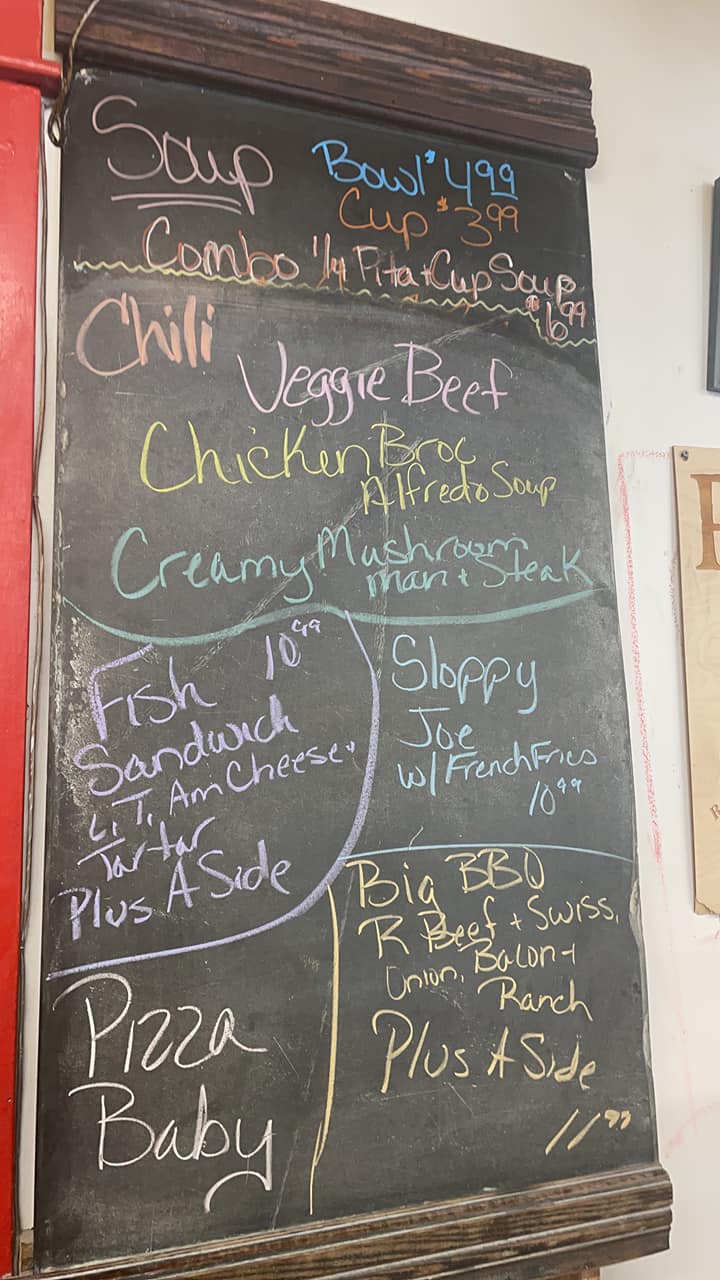 Soup Bowl $4.99
Cup $3.99
Combo 1/4 Pita + Cup Soup
$6.99
Chili
Veggie Beef
Chicken Broc
Alfredo Soup
Creamy Mushroom
man + Steak
Fish 10.99
Sandwich
L, T, Am Cheese +
Tartar
Plus A Side
Sloppy
Joe
w/ French Fries
10.99
Big BBQ
R Beef + Swiss,
Bacon +
Onion,
Ranch
Plus A Side
11.99
Pizza
Baby